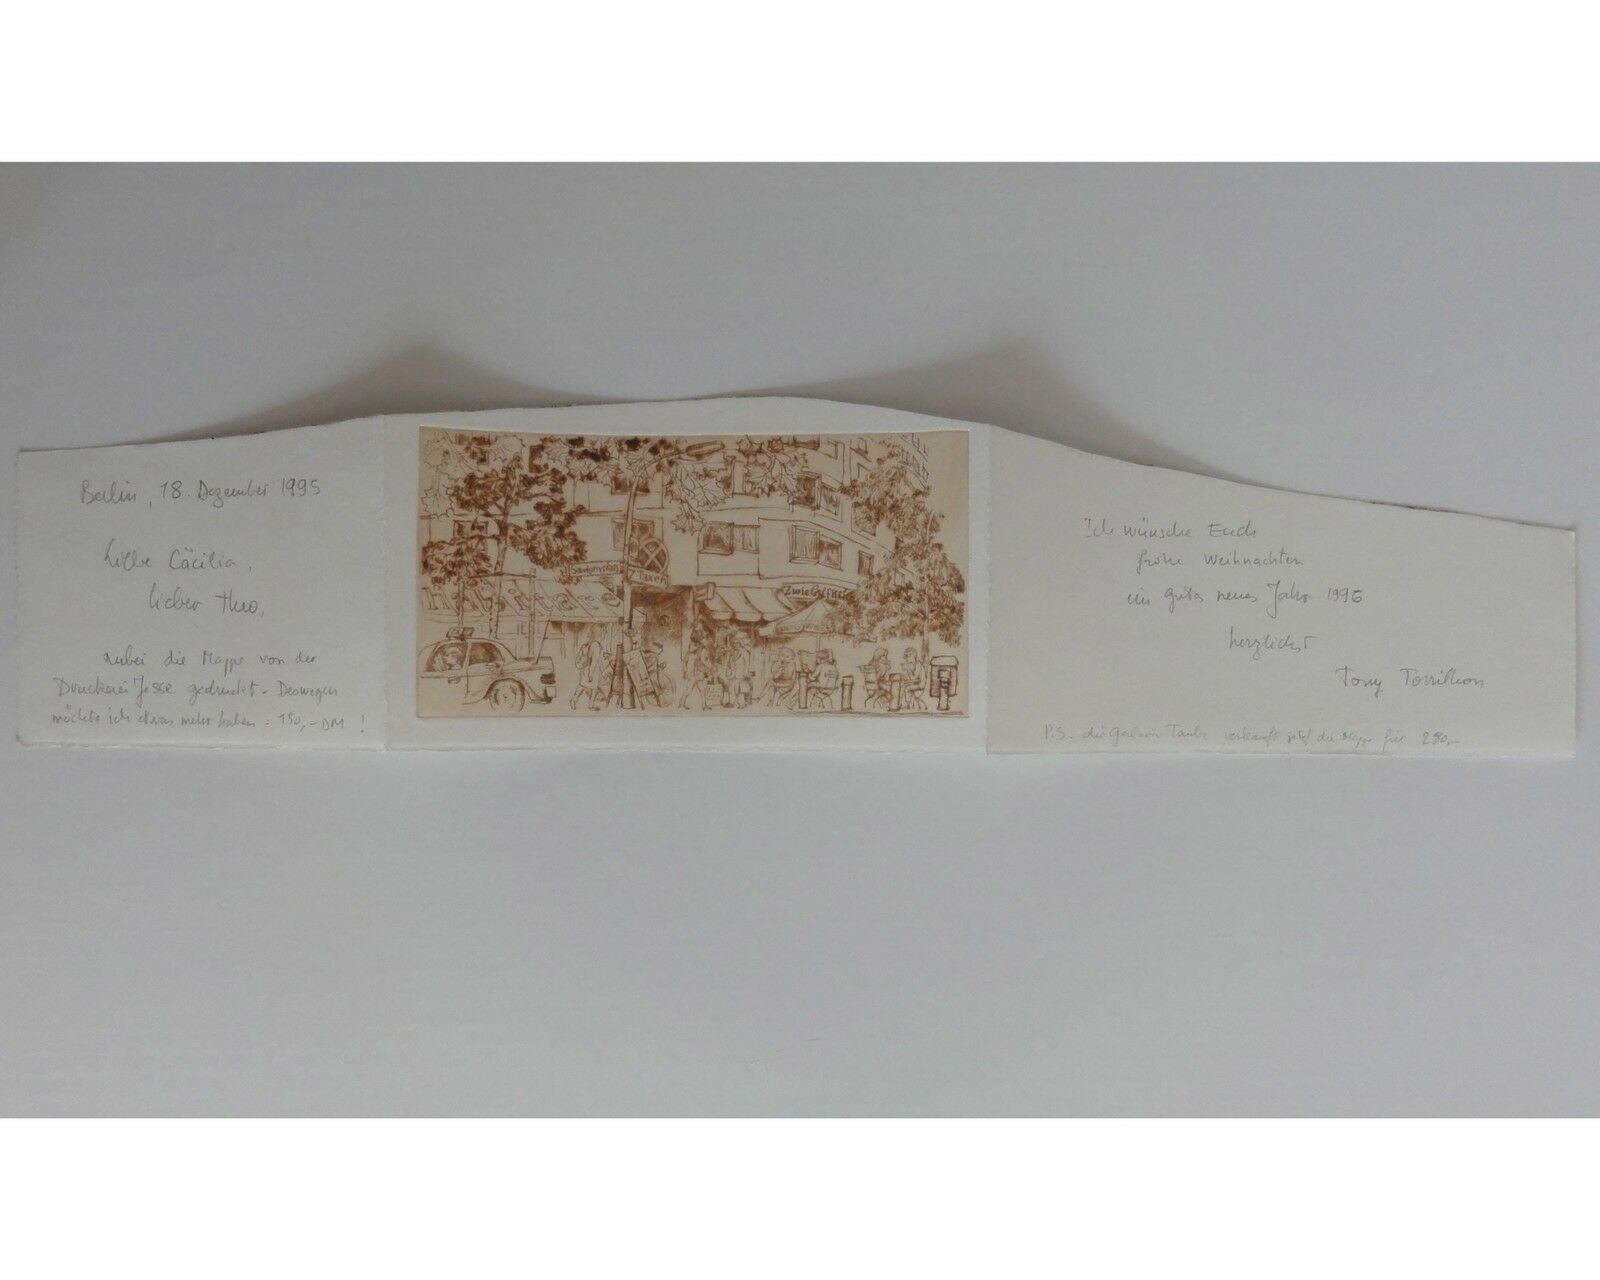 Berlin, 18. Dezember 1995
liebe Cäcilia,
lieber Theo,
anbei die Mappe von der
Druckerei Jesse gedruckt - Deswegen
möchte ich etwas mehr haben : 150,- DM !
Savignyplatz
7 Taxen
Zwiebelfisch
Ich wünsche Euch
frohe Weihnachten
ein gutes neues Jahr 1996
herzlichst
Tony Torrilhon
P.S. die Galerie Taube verkauft jetzt die Mappe für 280,-